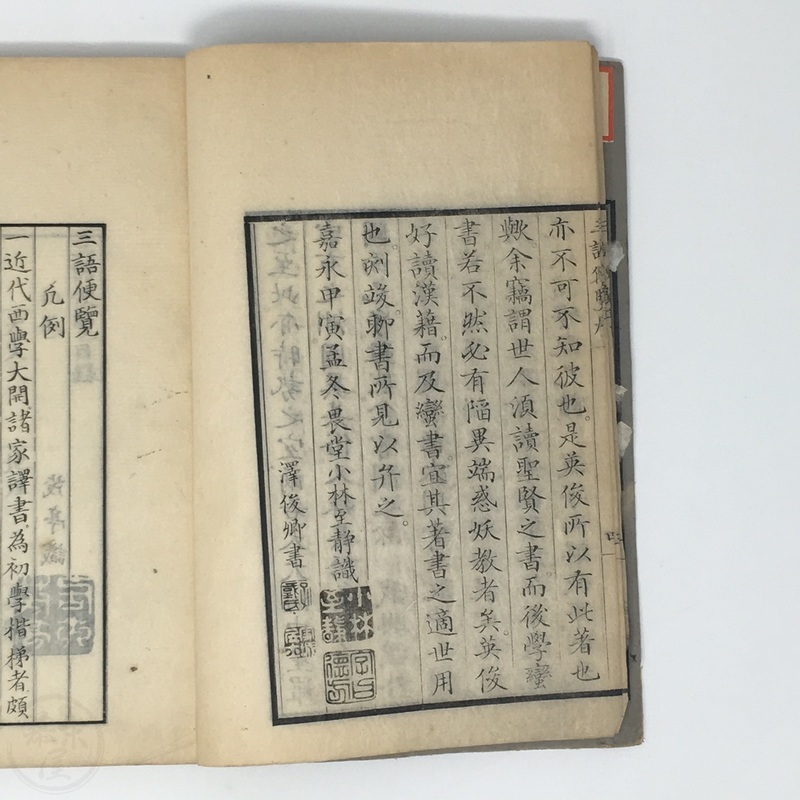 亦不可不知彼也。是英俊所以有此著也
歟。余竊謂世人須讀聖賢之書。而後學蠻
書若不然必有陷異端惑妖教者矣英俊
好讀漢藉。而及蠻書。宜其著書之適世用
也刻竣。聊書所見以弁之。
嘉永甲寅孟冬畏堂小林至靜識
小林至靜
澤俊卿書
三語便覽
凡例
一近代西學大開諸家譯書為初學楷梯者頗